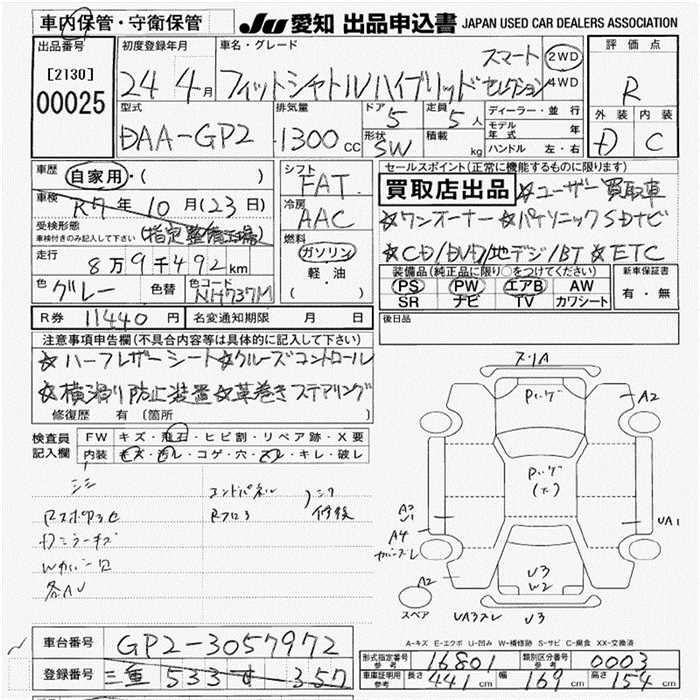 車内保管・守衛保管
JU 愛知 出品申込書 JAPAN USED CAR DEALERS ASSOCIATION
出品番号
[2130]
00025
初度登録年月
24 4月
車名・グレード
フィットシャトルハイブリッド スマートセレクション
2WD
4WD
評価点
R
外装 内装
D C
型式
DAA-GP2
排気量
1300 cc
ドア 5
定員 5人
形状 SW
積載 kg
ディーラー・並行
モデル年式 年
ハンドル 左・右
車歴 自家用・( )
車検 R7年 10月(23日)
受検形態
車検付きのみ記入して下さい (指定整備工場)
走行 8万9千492km
色 グレー 色替 色コード NH737M
シフト FAT
冷房 AAC
燃料
ガソリン
軽・油
( )
セールスポイント(正常に機能するものに限ります)
買取店出品 ☆ユーザー買取車
☆ワンオーナー ☆パナソニックSDナビ
☆CD/DVD/地デジ/BT ☆ETC
装備品(純正品に限り○をつけてください)
PS PW エアB AW
SR ナビ TV カワシート
新車保証書
有・無
R券 11440 円 名変通知期限 月 日
後日品
注意事項申告欄(不具合内容等は具体的に記入して下さい)
☆ハーフレザーシート☆クルーズコントロール
☆横滑り防止装置☆革巻きステアリング
修復歴 有 〔箇所 〕
検査員記入欄
FW キズ・飛石・ヒビ割・リペア跡・X要
内装 キズ・汚レ・コゲ・穴・スレ・キレ・破レ
Dミラーキズ
スリA
A2
A3
U1
A4
カバースレ
A2
UA1
U3
W2
スペア
UA3スレ U3
A-キズ E-エクボ U-凹み W-補修跡 S-サビ C-腐食 XX-交換済
車台番号 GP2-3057972
登録番号 三重 533 す 357
形式指定番号参考 16801 類別区分番号参考 0003
車庫証明用参考 長さ 441cm 幅 169cm 高さ 154cm